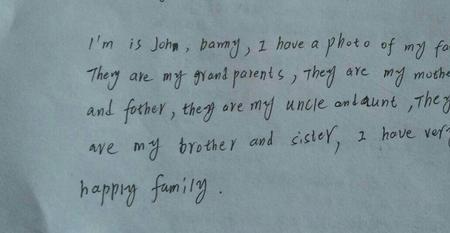 I'm is John, banny, I have a photo of my fa
They are my grandparents, They are my mothe
and fother, they are my uncle and aunt, They
are my brother and sister, I have very
happy family.